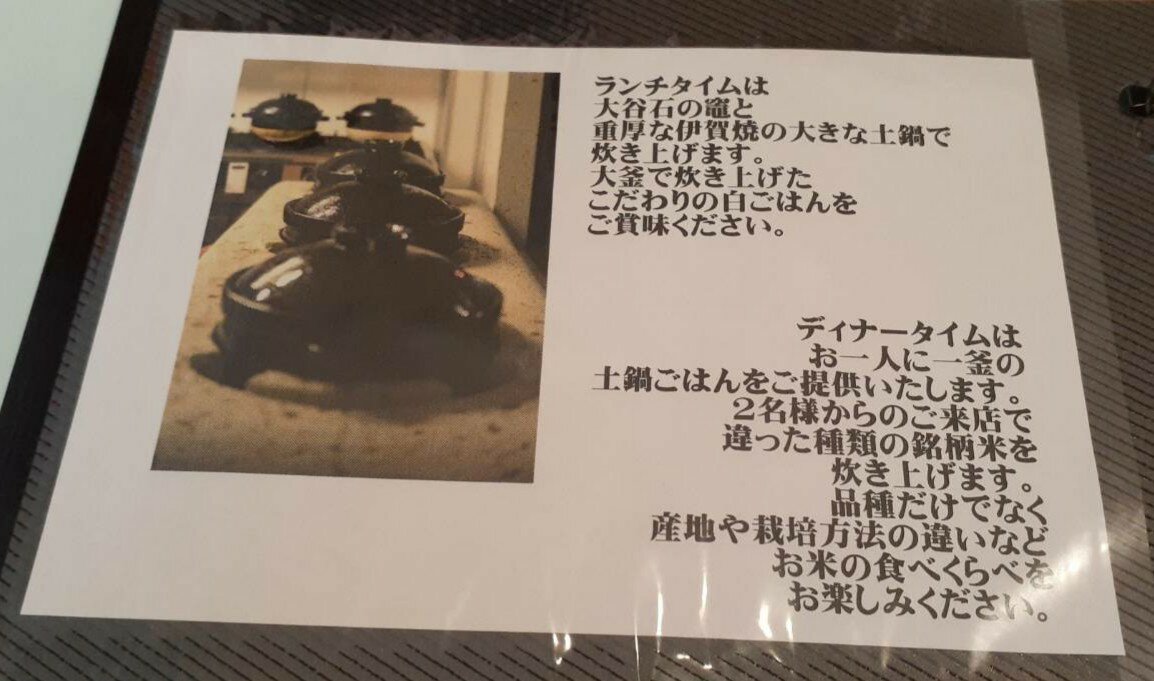 ランチタイムは
大谷石の竈と
重厚な伊賀焼の大きな土鍋で
炊き上げます。
大釜で炊き上げた
こだわりの白ごはんを
ご賞味ください。
ディナータイムは
お一人に一釜の
土鍋ごはんをご提供いたします。
２名様からのご来店で
違った種類の銘柄米を
炊き上げます。
品種だけでなく
産地や栽培方法の違いなど
お米の食べくらべを
お楽しみください。